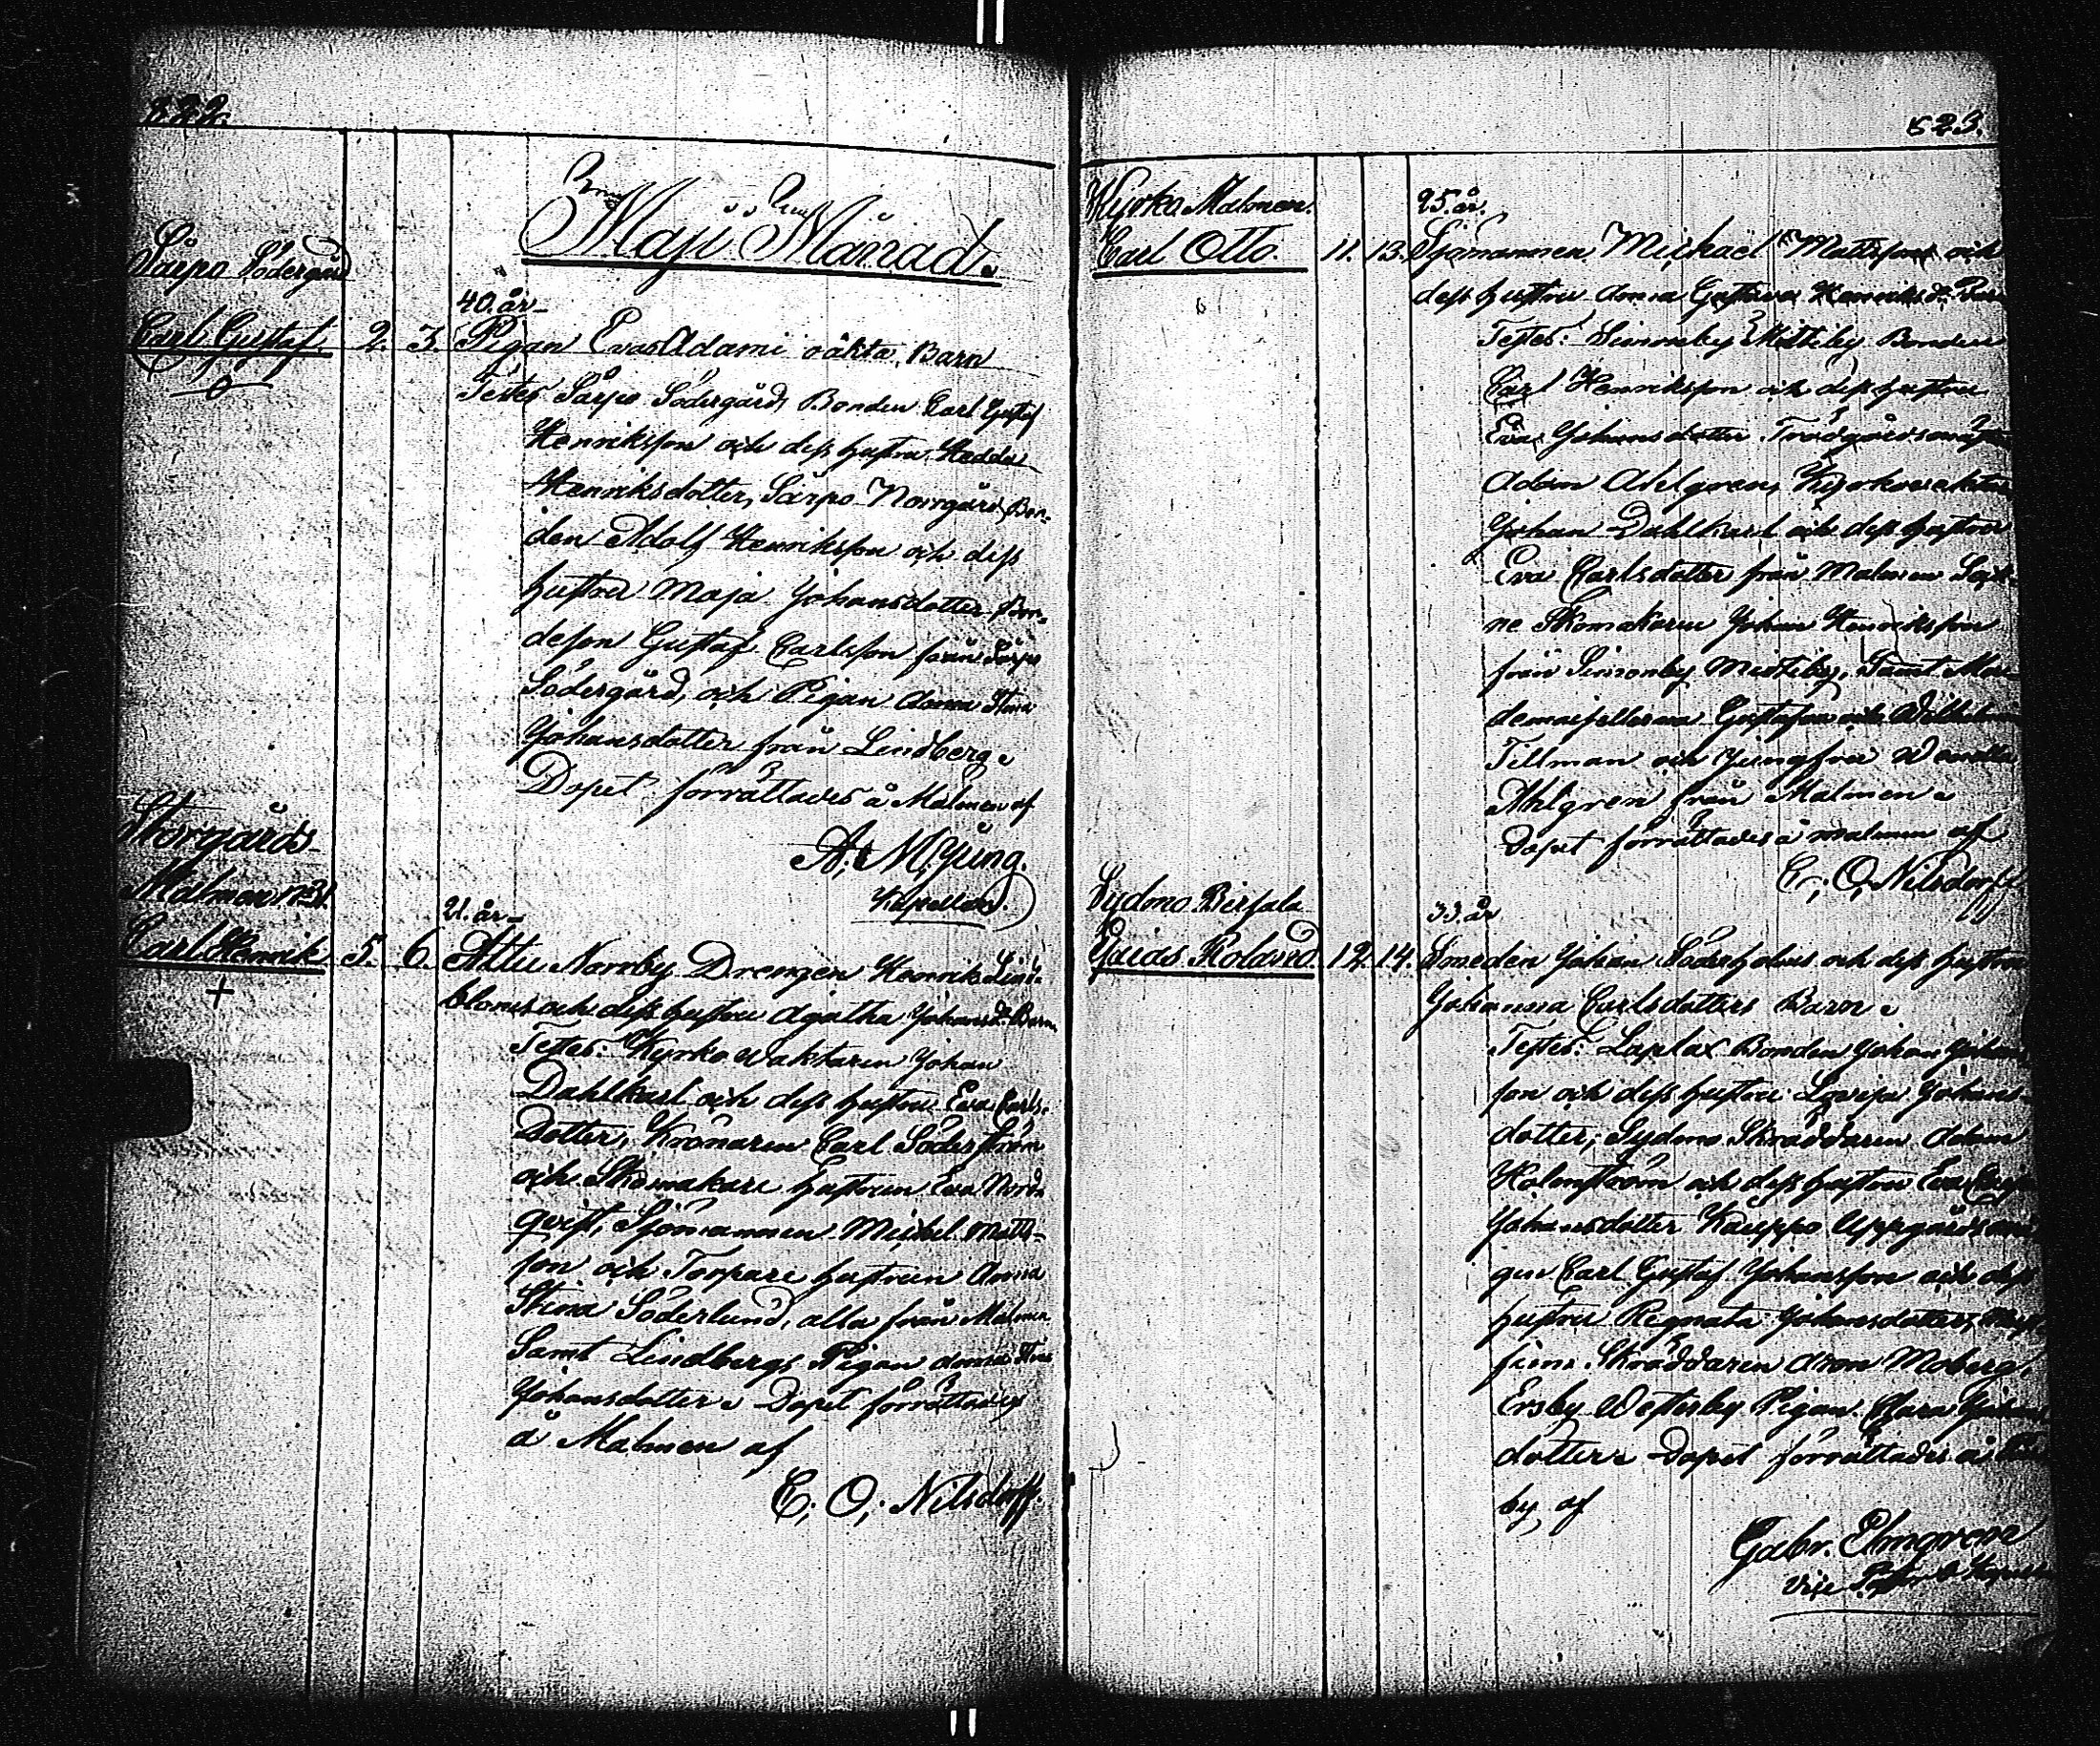 822.
Maji Månad.
Särpo Södergård
40. år
Carl Gustaf. 2. 3. Pigan Evas Adami oäkta Barn
Testes Särpo Södergårds Bonden Carl Gustaf
Henriksson och dess hustru Hedda
Henriksdotter, Särpo Norrgårds Bon-
den Adolf Henriksson och dess
hustru Maja Johansdotter Bon-
deson Gustaf Carlsson från Särpo
Södergård, och Pigan Anna Stina
Johansdotter från Lindberg.
Dopet förrättades å Malmen af
A. M. Jüng.
Kapellan.
Storgårds
Malmen N:o 31.
21. år
Carl Henrik 5. 6. Attu Norrby Drengen Henrik Lind-
bloms och dess hustru Agatha Johansd:r Barn.
Testes: Kyrkowaktaren Johan
Dahlkarl och dess hustru Eva Carls-
dotter, Kronaren Carl Söderström
och Skomakare hustrun Eva Nord-
qvist, Sjömannen Michel Matts-
son och Torpare hustrun Anna
Stina Söderlund, alla från Malmen
Samt Lindbergs Pigan Anna Stina
Johansdotter. Dopet förrättades
å Malmen af
C. O. Nilsdorff.
823.
Kyrko Malmen. 25. år.
Carl Otto. 11. 13. Sjömannen Michaël Mattsson och
dess hustru Anna Gustava Henriksd:r Barn
Testes: Simonby Mitteby Bonden
Carl Henriksson och dess hustru
Eva Johansdotter Trädgårdsmäst
Adam Ahlgren, Kyrkovaktar
Johan Dahlkarl och dess hustru
Eva Carlsdotter från Malmen
ne Skomakaren Johan Henriksson
från Simonby Mitteby, Samt Ma-
demoisellerna Gustafva och Wilhelm
Tillman och Jungfru Wendla
Ahlgren från Malmen.
Dopet förrättades å Malmen af
C. O. Nilsdorff
Sydmo Bersala 33. år
Roland 12. 14. Smeden Johan Söderholms och dess hustru
Johanna Carlsdotters Barn.
Testes: Laplax Bonden Johan Johans
son och dess hustru Lovisa Johans-
dotter; Sydmo Skräddaren Adam
Holmström och dess hustru Eva
Johansdotter Kauppo Uppgårds
gen Carl Gustaf Johansson och dess
hustru Regnata Johansdotter,
Skräddaren Aron Moberg,
Ersby Westerby Pigan Clara Johans
dotter. Dopet förrättades å
by af
Gabr. Elmgrene
Vice Pastor & Kapellan